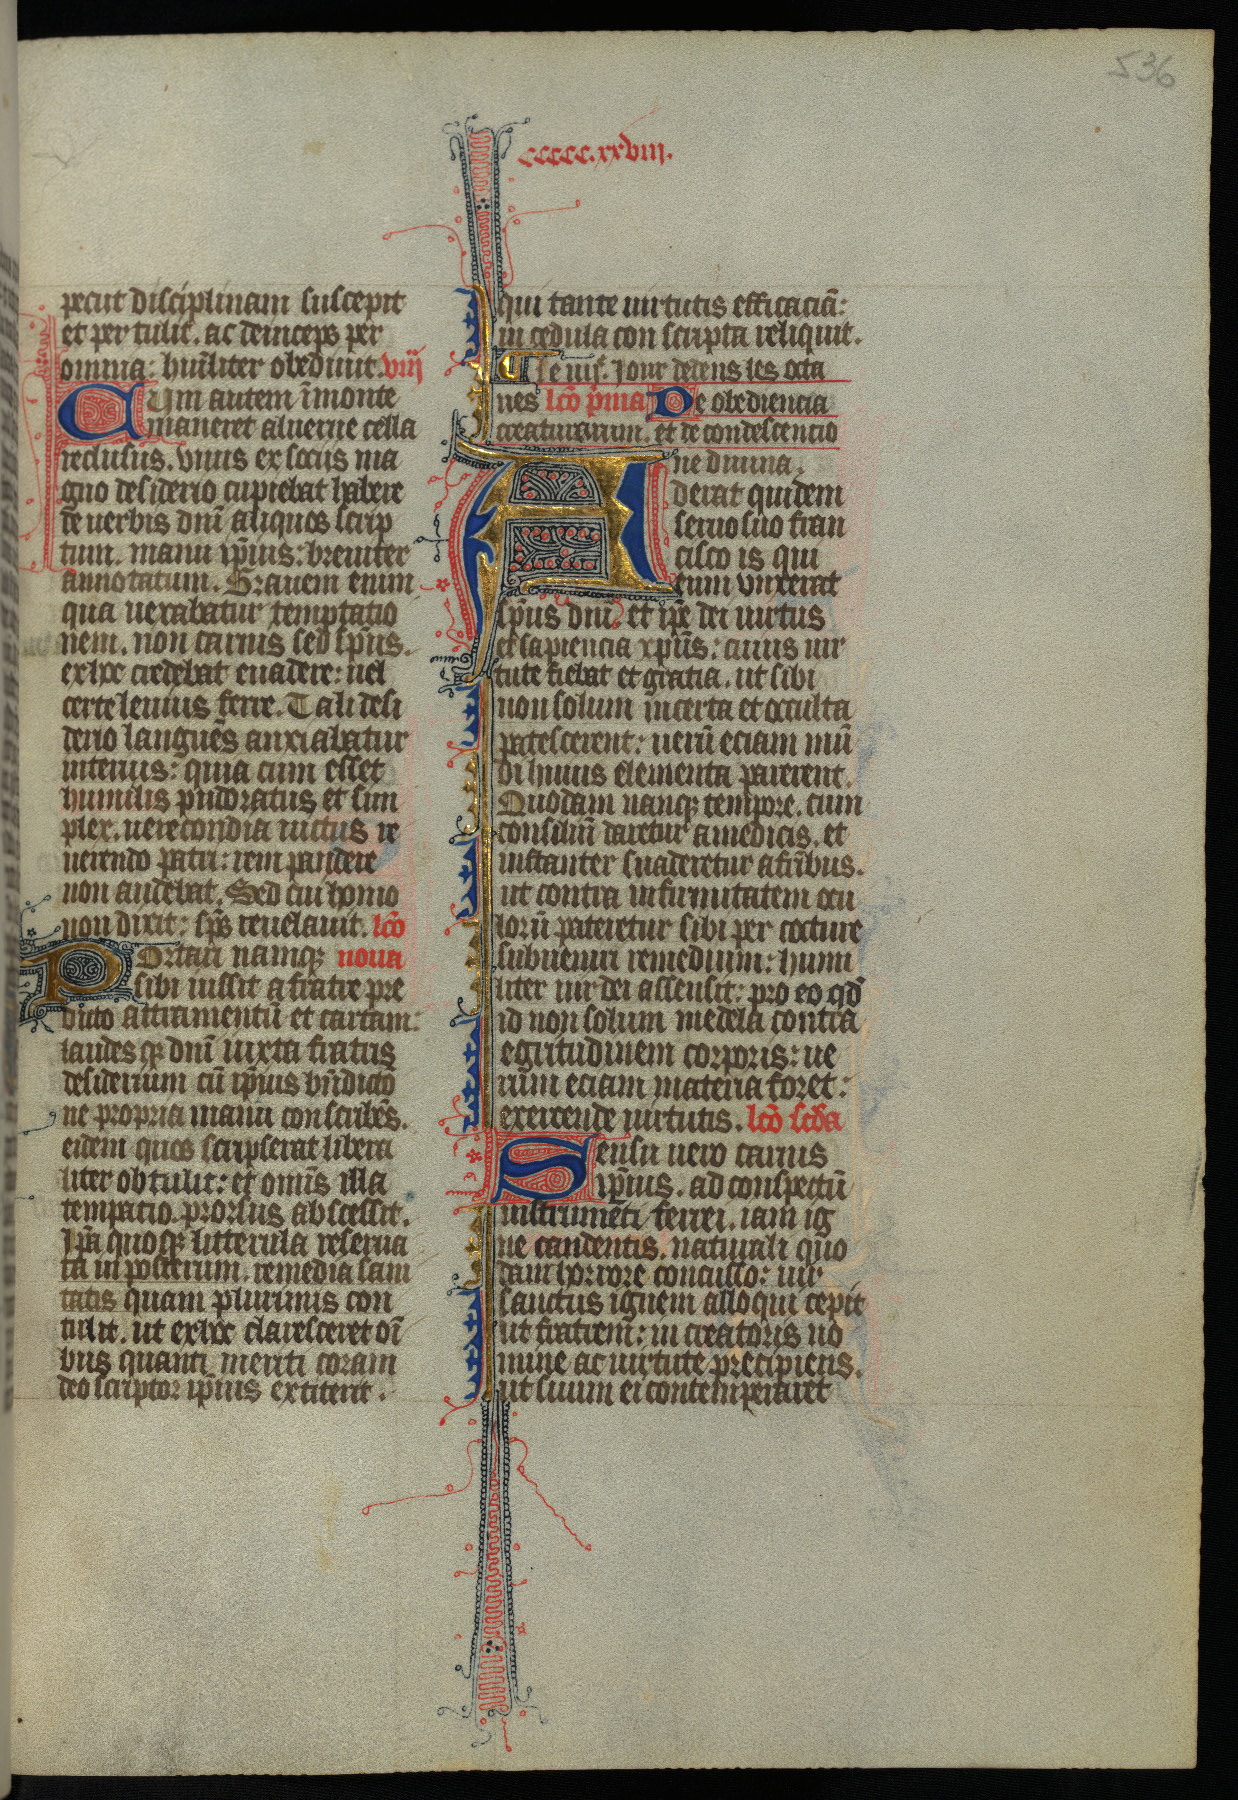 536
ccccc.xxviii.
petiit disciplinam suscepit
et per tulit. ac deinceps per
omnia: hūiliter obediuit. viij
Cum autem ī monte
maneret aluerne cella
reclusus. vnus ex sociis ma
gno desiderio cupiebat habere
de uerbis dn̄i aliquos scrip
tum. manu ip̄ius: breuiter
annotatum. Grauem enim
qua uexabatur temptatio
nem. non carnis sed sp̄us.
ex hoc credebat euadere: uel
certe leuius ferre. Tali desi
derio languēs anxiabatur
interius: quia cum esset
humilis pudoratus et sim
plex. uerecondia uictus re
uerendo patri: rem pandere
non audebat. Sed cui homo
non dixit: sp̄s reuelauit. lcō
Portari namq; noua
sibi iussit a fratre pre
dicto attramentū et cartam:
laudes q; dn̄i iuxta fratris
desiderium cū ip̄ius bn̄dictō
ne propria manu conscribēs.
eidem quos scripserat libera
liter obtulit: et omīs illa
temptatio prorsus abscessit.
Ip̄a quoq; litterula reserua
ta in posterum. remedia sani
tatis quam plurimis con
tulit. ut ex hoc claresceret oī
bus quanti meriti coram
deo scriptor ip̄ius extiterit.
qui tante uirtutis efficaciā:
in cedula conscripta reliquit.
¶ Le uis. iour dedens les octa
nes lcō p̄ma De obediencia
creaturarum. et de condescencio
Ane diuina.
derat quidem
seruo suo fran
cisco is qui
eum vnxerat
sp̄us dn̄i. et ip̄e dei uirtus
et sapiencia xp̄us: cuius uir
tute fiebat et gratia. ut sibi
non solum incerta et occulta
patescerent: uerū eciam mū
di huius elementa parerent.
Quodam nanq; tempore. cum
consiliū daretur a medicis. et
instanter suaderetur a frībus.
ut contra infirmitatem ocu
lorū pateretur sibi per cocture
subueniri remedium: humi
liter uir dei assensit: pro eo qd̄
id non solum medela contra
egritudinem corporis: ue
rūm eciam materia foret:
exercende uirtutis. lcō scd̄a
Sensu uero carnis
ip̄ius. ad conspectū
instrumēti ferrei. iam ig
ne candentis. naturali quo
dam horrore concusso: uir
sanctus ignem alloqui cepit
ut fratrem: in creatoris no
mine ac uirtute precipiens.
ut suum ei contemperaret